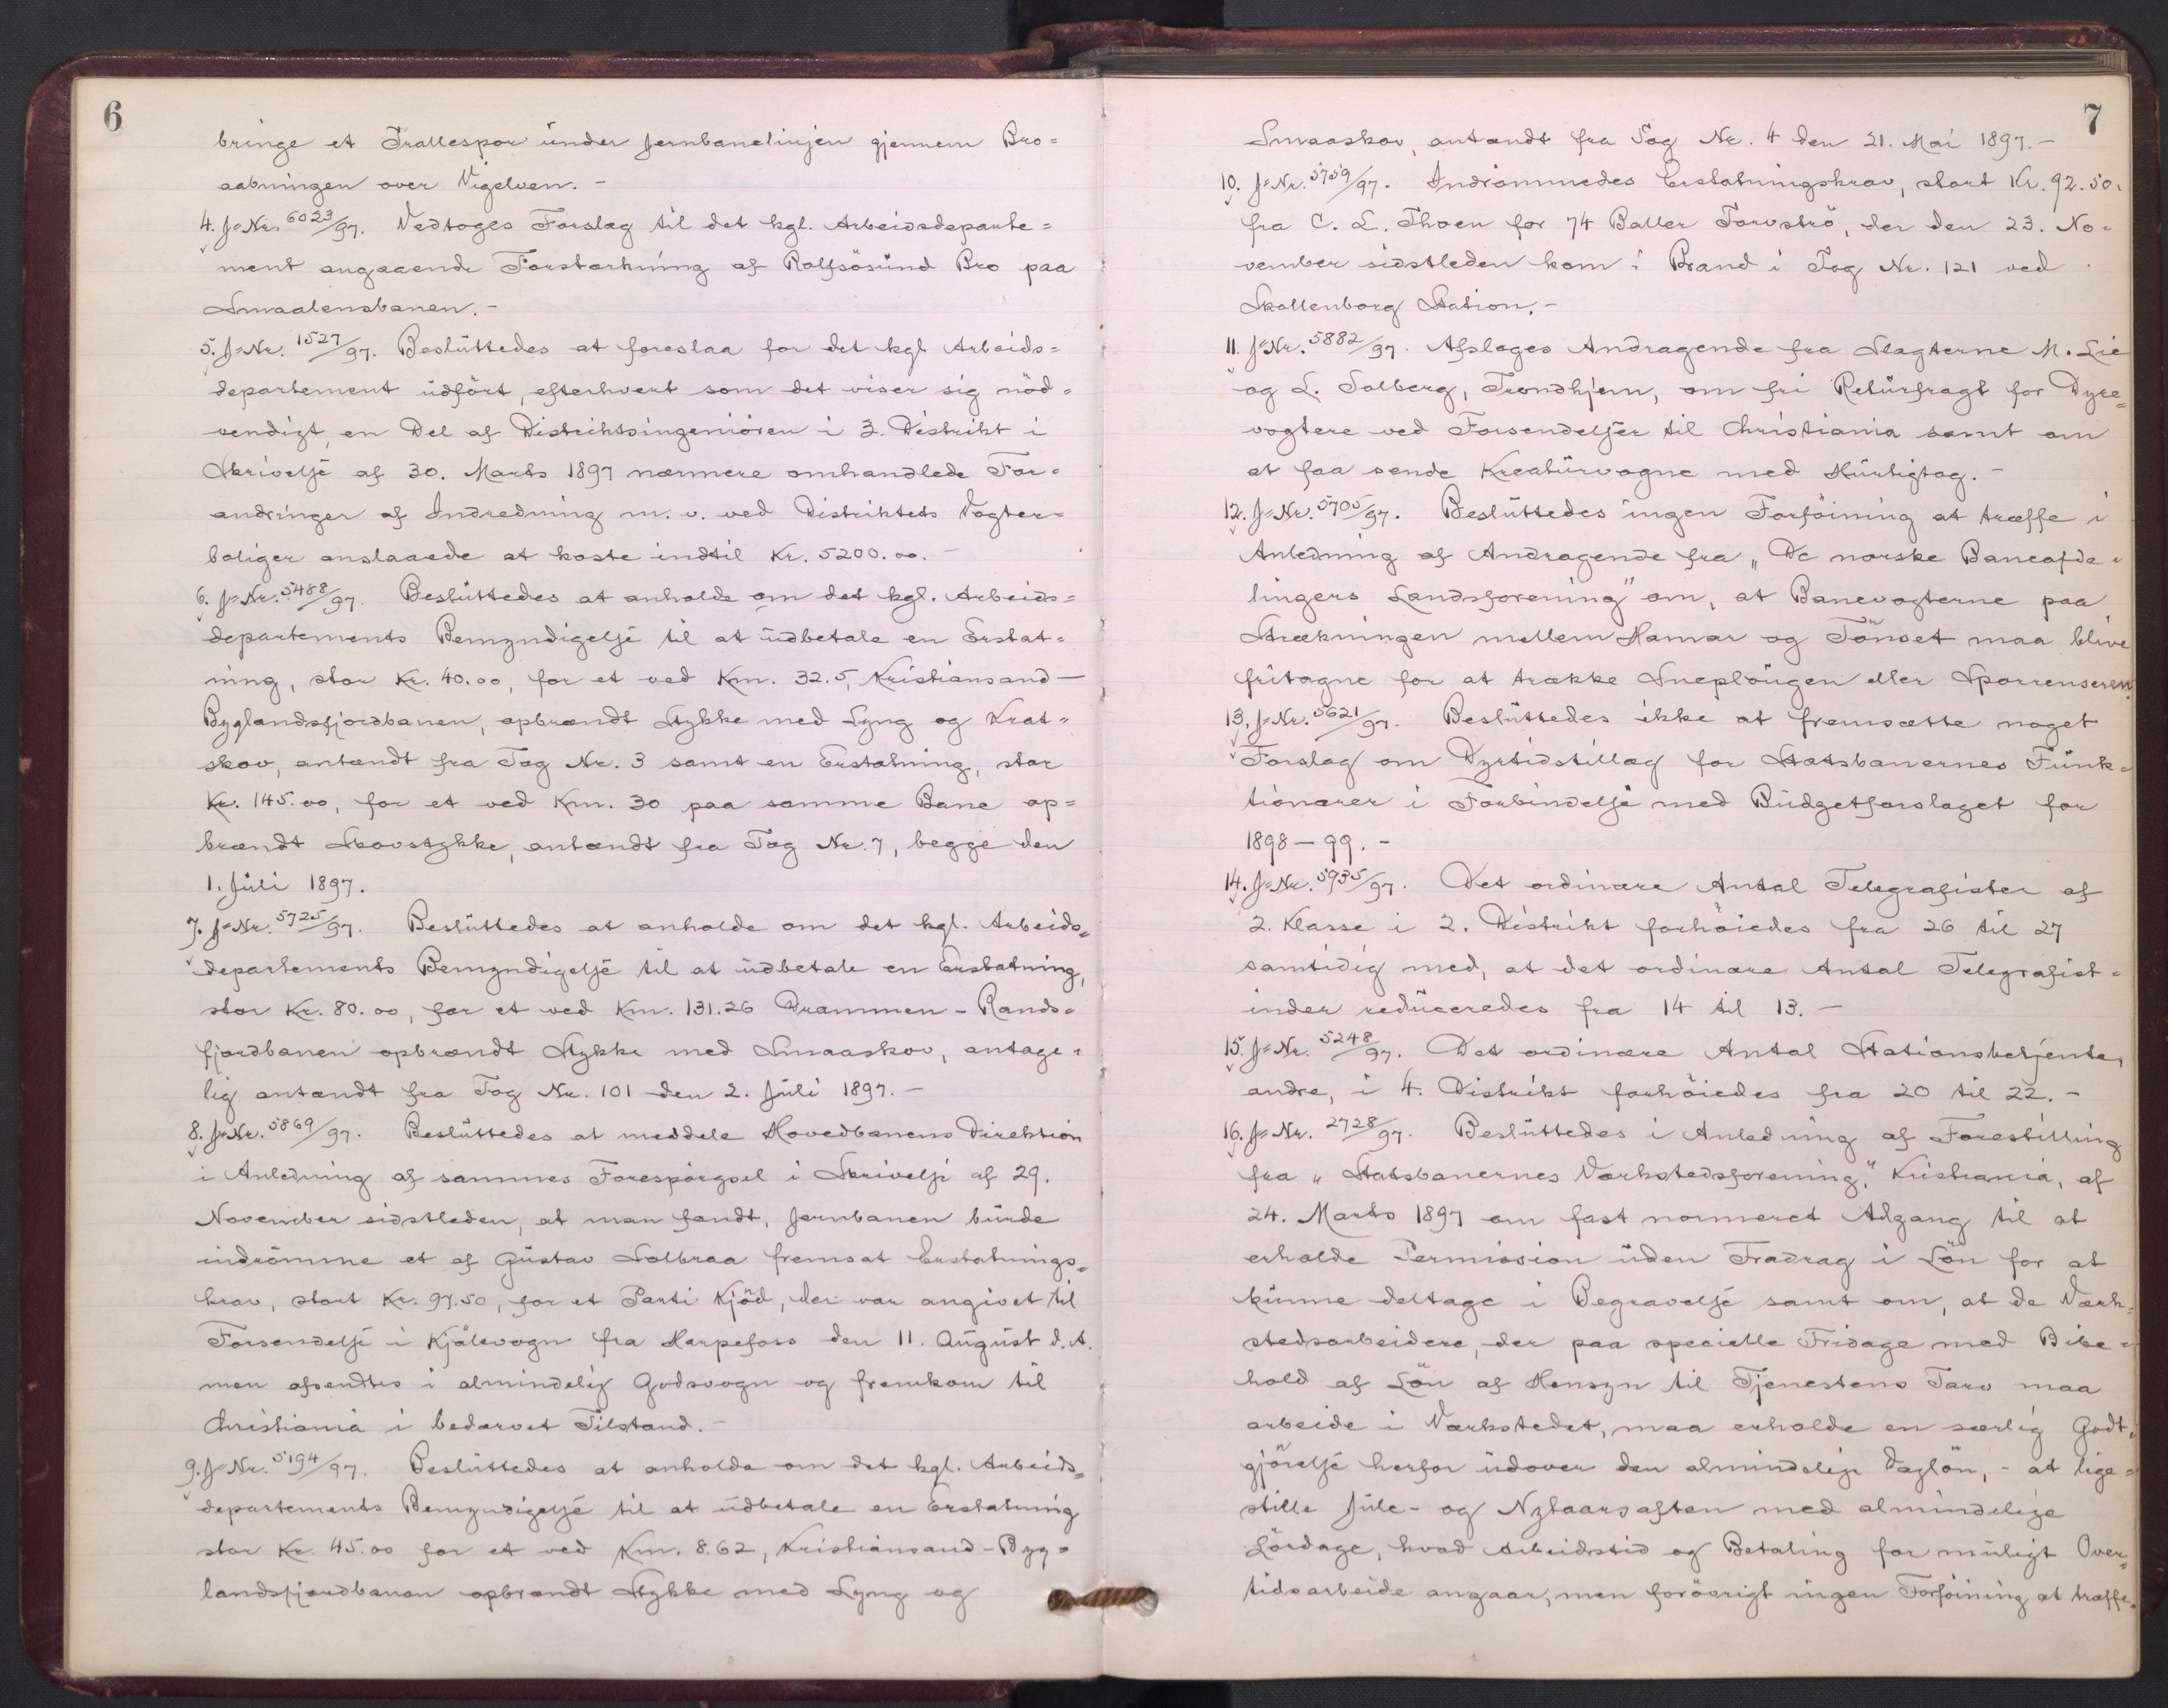 6
bringe et Trallespor under Jernbanelinjen gjennem Bro=
aabningen over Vigelven. -
4. J=Nr. 6023/97. Vedtoges Forslag til det kgl. Arbeidsdeparte=
ment angaaende Forstærkning af Rolfsösund Bro paa
Smaalensbanen. -
5. J=Nr. 1527/97. Besluttedes at foreslaa for det kgl Arbeids=
departement udfört, efterhvert som det viser sig nöd=
vendigt en Del af Distriktsingeniören i 3. Distrikt i
Skrivelse af 30. Marts 1897 nærmere omhandlede For=
andringer af Indredning m. v. ved Distriktets Vogter=
boliger anslaaede at koste indtil Kr. 5200.00. -
6. J=Nr. 5488/97. Besluttedes at anholde om det kgl. Arbeids=
departements Bemyndigelse til at udbetale en Erstat=
ning, stor Kr. 40.00, for et ved Km. 32.5, Kristiansand -
Byglandsfjordbanen, opbrændt Stykke med Lyng og Krat=
skov, antændt fra Tog Nr. 3 samt en Erstatning, stor
Kr. 145.00, for et ved Km. 30 paa samme Bane op=
brændt Skovstykke, antændt fra Tog Nr. 7, begge den
1. Juli 1897.
7. J=Nr. 5725/97. Besluttedes at anholde om det kgl. Arbeids=
departements Bemyndigelse til at udbetale en Erstatning,
stor Kr. 80.00, for et ved Km. 131.26 Drammen - Rands=
fjordbanen opbrændt Stykke med Smaaskov, antage=
lig antændt fra Tog Nr. 101 den 2. Juli 1897. -
8. J=Nr. 5869/97. Besluttedes at meddele Hovedbanens Direktion
i Anledning af sammes Forespörgsel i Skrivelse af 29.
November sidstleden, at man fandt, Jernbanen burde
indrömme et af Gustav Solbraa fremsat Erstatnings=
krav, stort Kr. 97.50, for et Parti Kjöd, der var angivet til
Forsendelse i Kjölevogn fra Harpefoss den 11. August d. A.
men afsendtes i almindelig Godsvogn og fremkom til
Christiania i bedærvet Tilstand. -
9. J=Nr. 5194/97. Besluttedes at anholde om det kgl. Arbeids=
departements Bemyndigelse til at udbetale en Erstatning
stor Kr. 45.00 for et ved Km. 8.62, Kristiansand - Byg=
landsfjordbanen opbrændt Stykke med Lyng og
7
Smaaskov, antændt fra Tog Nr. 4 den 21. Mai 1897. -
10. J=Nr. 5759/97. Indrömmedes Erstatningskrav, stort Kr. 92.50.
fra C. L. Thoen for 74 Baller Torvströ, der den 23. No=
vember sidstleden kom i Brand i Tog Nr. 121 ved
Skollenborg Station. -
11. J=Nr. 5882/97. Afsloges Andragende fra Slagterne M. Lie
og L. Solberg, Trondhjem, om fri Returfragt for Dyre=
vogtere ved Forsendelser til Christiania samt om
at faa sende Kreaturvogne med Hurtigtog. -
12. J=Nr. 5705/97. Besluttedes ingen Forföining at træffe i
Anledning af Andragende fra "De norske Baneafde=
lingers Landsforening" om, at Banevogterne paa
Strækningen mellem Hamar og Tönset maa blive
fritagne for at trække Sneplougen eller Sporrenseren.
13. J=Nr. 5621/97. Besluttedes ikke at fremsætte noget
Forslag om Dyrtidstillæg for Statsbanernes Funk=
tionærer i Forbindelse med Budgetforslaget for
1898 - 99. -
14. J=Nr. 5935/97. Det ordinære Antal Telegrafister af
2. Klasse i 2. Distrikt forhöiedes fra 26 til 27
samtidig med, at det ordinære Antal Telegrafist=
inder reduceredes fra 14 til 13. -
15. J=Nr. 5248/97. Det ordinære Antal Stationsbetjente,
andre, i 4. Distrikt forhöiedes fra 20 til 22. -
16. J=Nr. 2728/97. Besluttedes i Anledning af Forestilling
fra "Statsbanernes Værkstedsforening," Kristiania, af
24. Marts 1897 om fast normeret Adgang til at
erholde Permission uden Fradrag i Lön for at
kunne deltage i Begravelse samt om, at de Værk=
stedsarbeidere, der paa specielle Fridage med Bibe=
hold af Lön af Hensyn til Tjenestens Tarv maa
arbeide i Værkstedet, maa erholde en særlig Godt=
gjörelse herfor udover den almindelige Daglön, - at lige=
stille Jule- og Nytaarsaften med almindelige
Lördage, hvad Arbeidstid og Betaling for muligt Over=
tidsarbeide angaar, men foröverigt ingen Forföining at træffe.